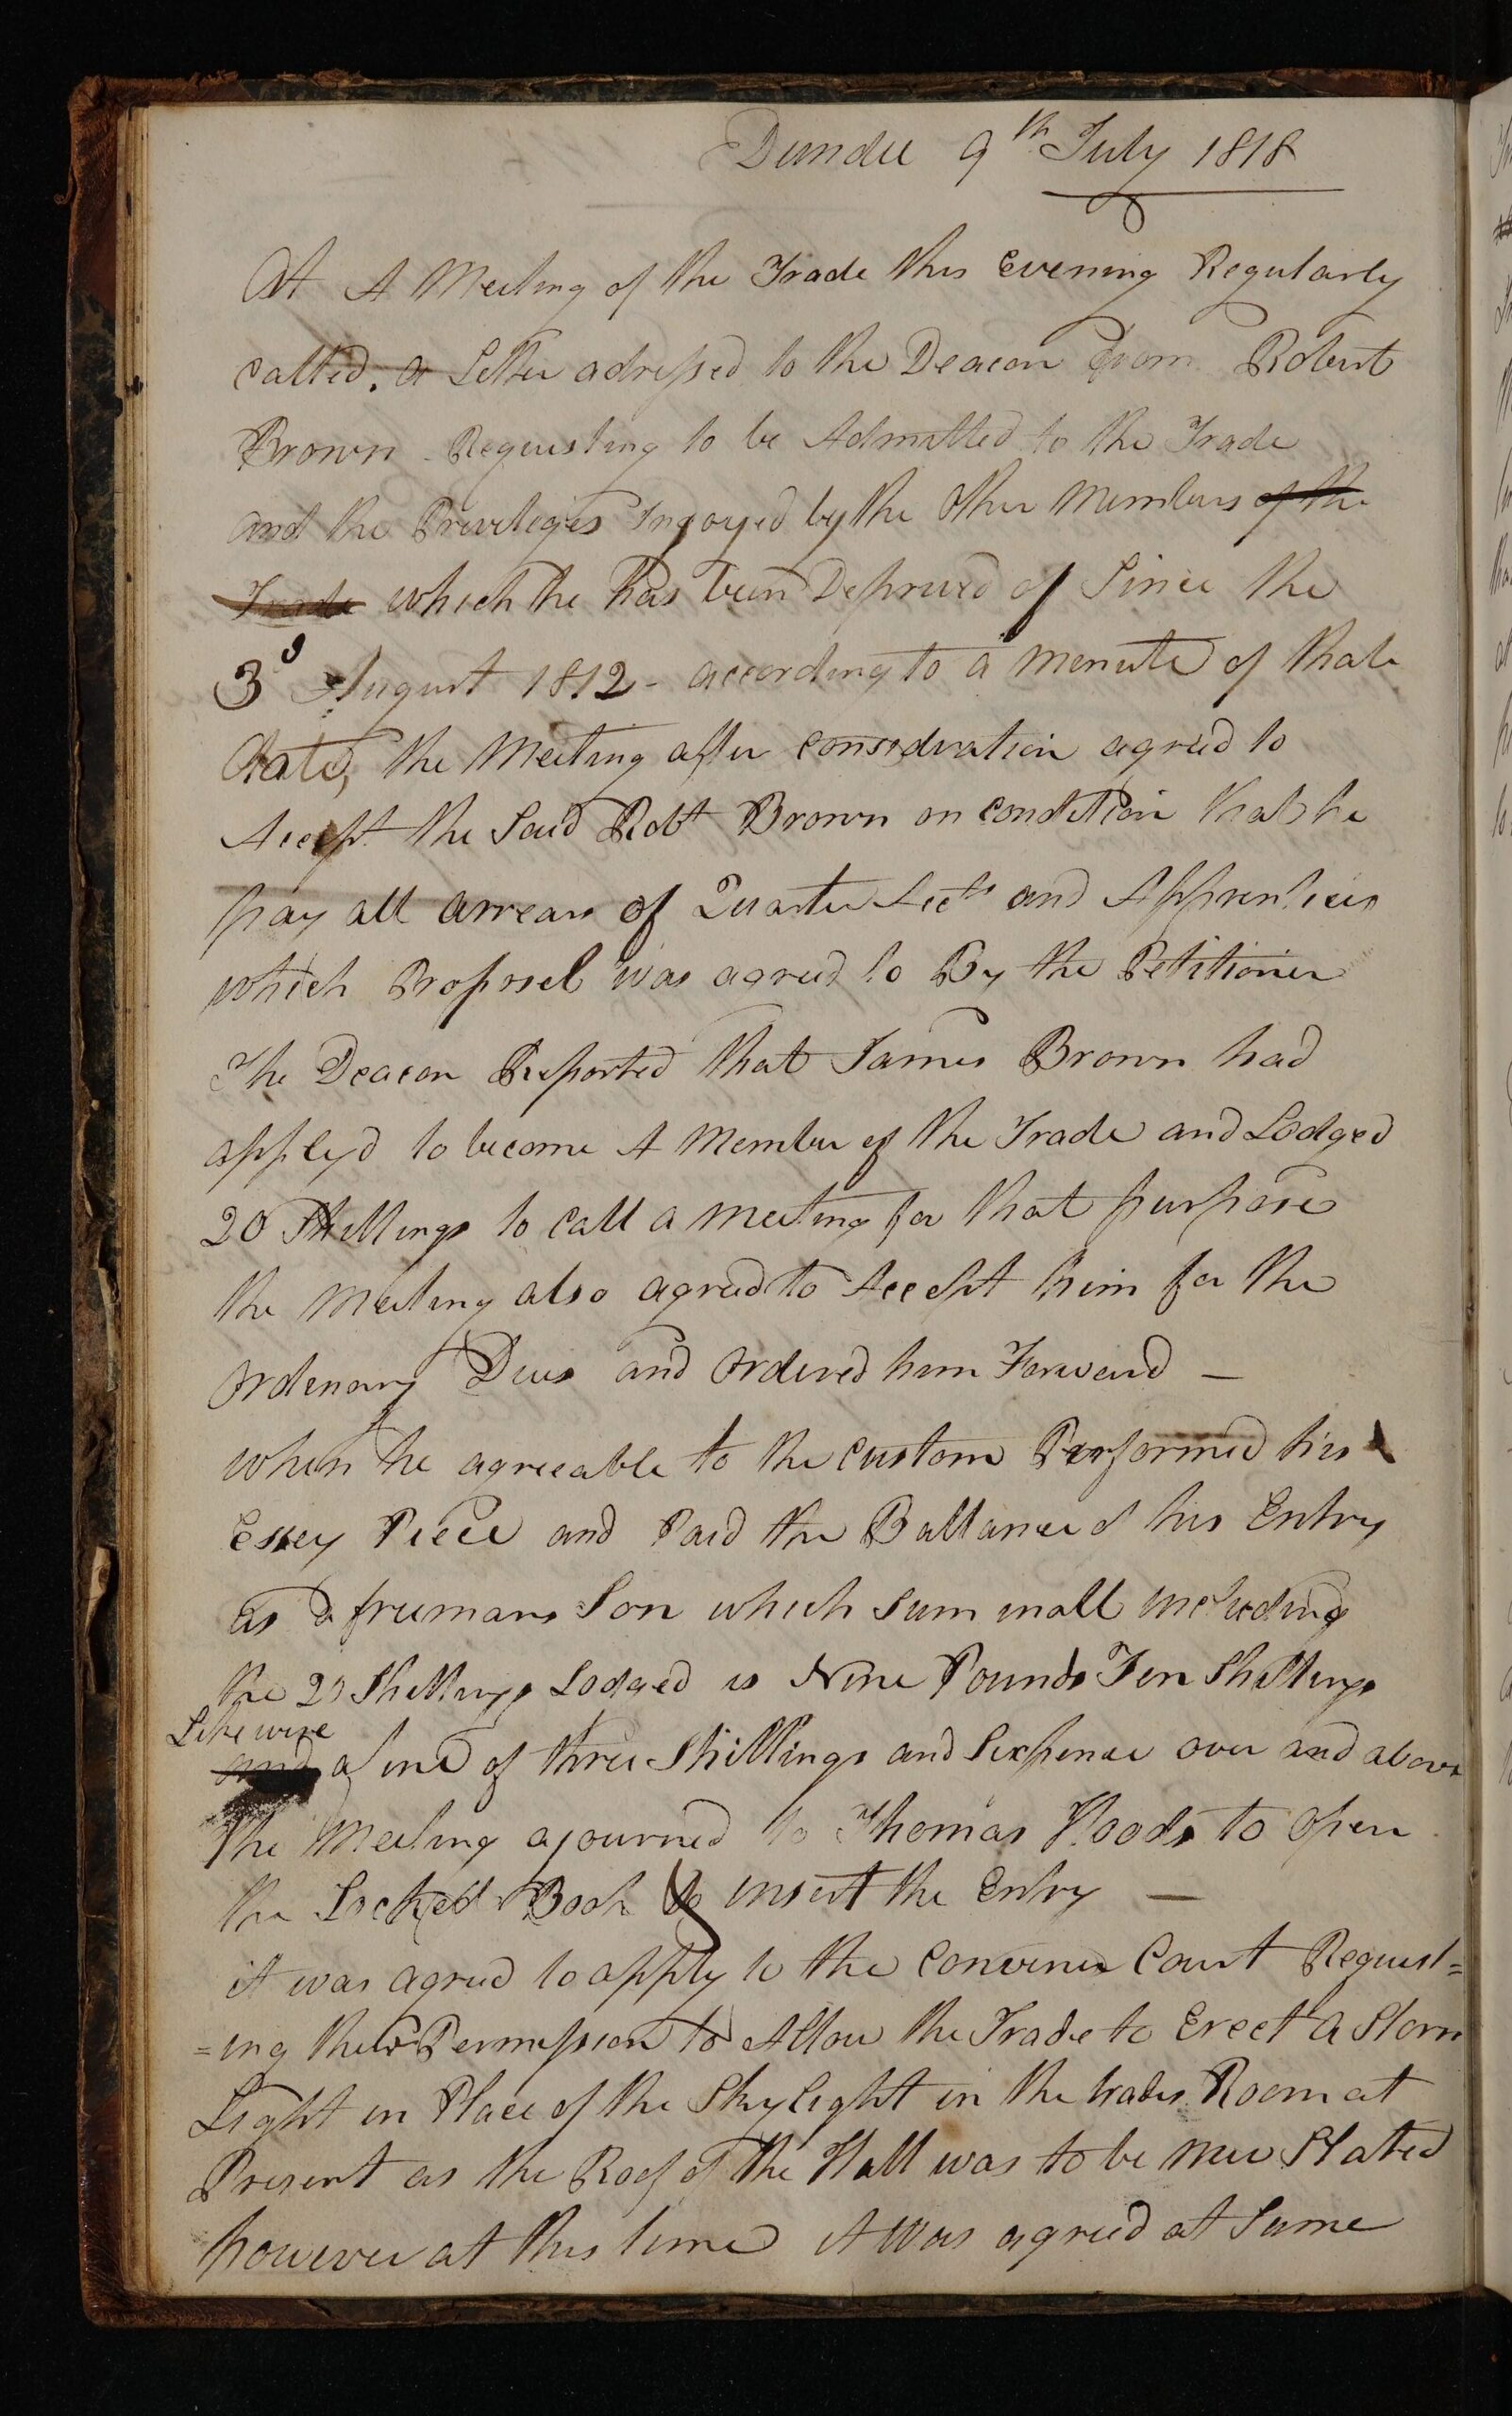 Dundee 9th July 1818
At A Meeting of the Trade this Evening Regularly
called. a Letter adressed to the Deacon from Robert
Brown Requisting to be Admitted to the Trade
and the Priveleges Ingoyed by the Other Members of the
Trade which he has been Deprived of Since the
3d August 1812 - according to a menute of that
date, the Meeting after consideration agreed to
Accept the Said Robt Brown on condition that he
pay all arrears of Quarter Accts and Apprentices
which Proposel was agreed to By the Petitioner
The Deacon Reported that James Brown had
applyd to become A Member of the Trade and Lodged
20 Shillings to call a meeting for that purpose
the Meeting also agreed to Accept him for the
ordenary Dues and ordered him Forward —
when he agreeable to the custom Performed his
Essey Piece and Paid the Ballance of his Entry
as a freemans Son which sum in all including
the 20 Shillings Lodged is Nine Pounds Ten Shillings
Likewise
and a fine of three Shillings and Sixpence over and above
The Meeting ajourned to Thomas Hoods to open
the Locked Book to insert the Entry —
it was agreed to apply to the Convener Court Request=
=ing their Permission to Allow the Trade to Erect a Storm
Light in Place of the Skylight in the trades Room at
Present as the Roof of the Hall was to be new Slated
however at this time it was agreed at Same